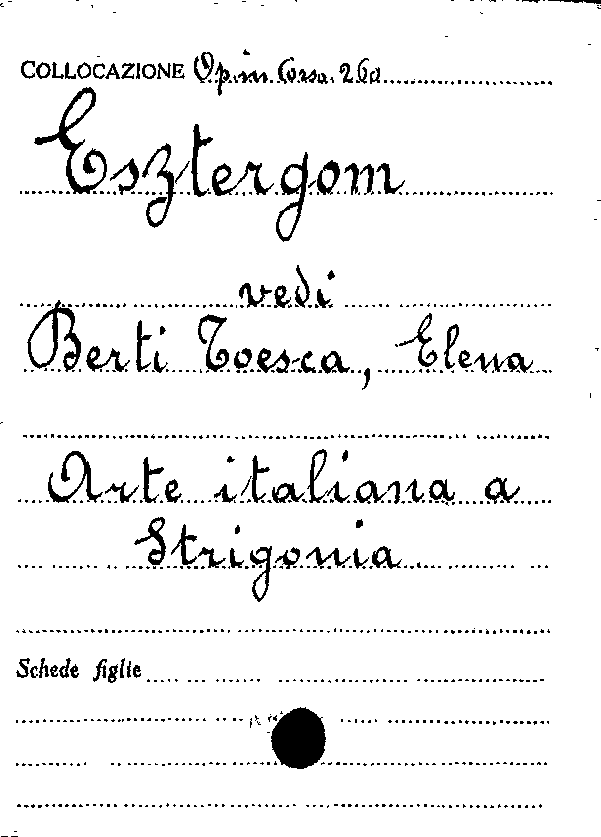 COLLOCAZIONE Op. in Corso. 260
Esztergom
vedi
Berti Toesca, Elena
Arte italiana a
Strigonia
Schede figlie